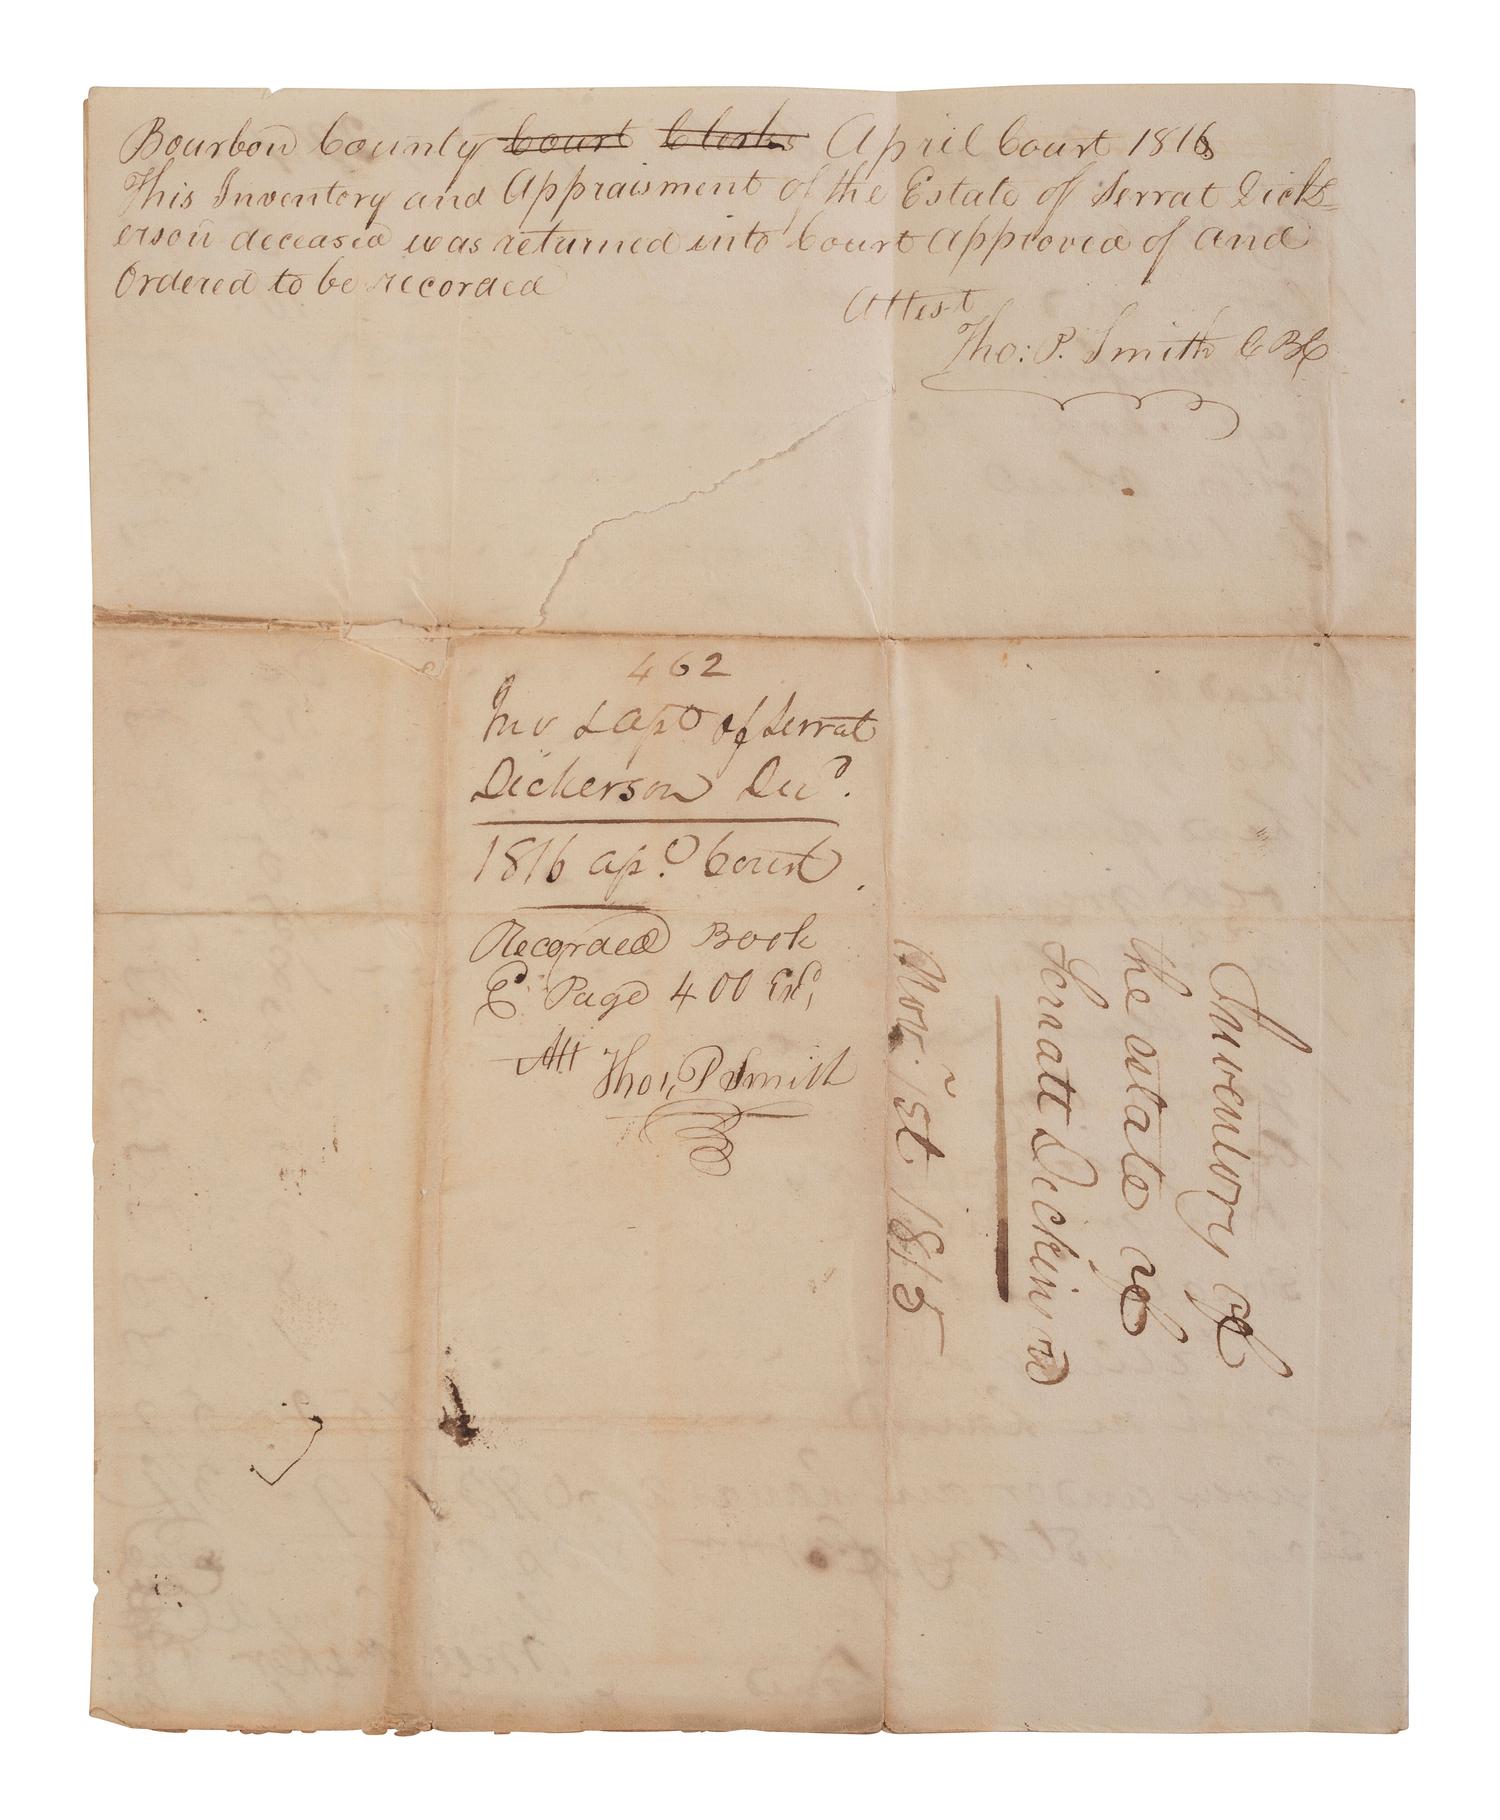 Bourbon County Court Clerks April Court 1816
This Inventory and Appraisment of the Estate of Serrat Dick=
erson deceased was returned into Court Approved of and
Ordered to be recorded
Attest
Tho: P. Smith CBC
462
Inv & Apt of Serrat
Dickerson Decd.
1816 Apl. Court
Recorded Book
E Page 400 Exd,
Att Tho, P Smith
Inventory of
the estate of
Serratt Dickinson
Nov. 1st 1815